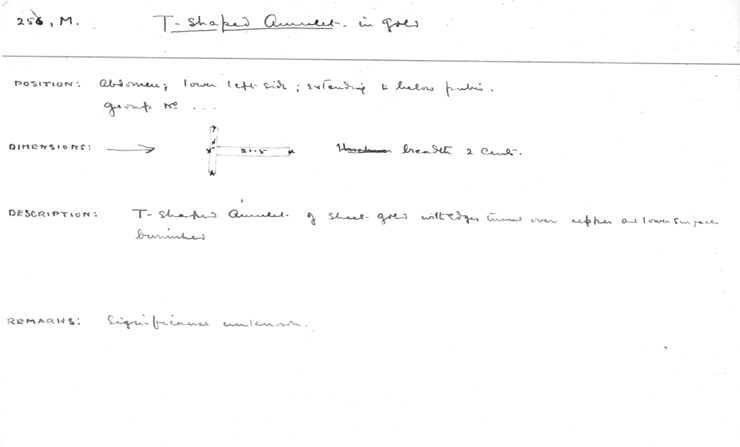 256, M. T-Shaped Amulet in gold
POSITION: Abdomen; lower left side; extending to below pubis.
Group No ...
DIMENSIONS: 21.5 breadth 2 Cents.
DESCRIPTION: T-Shaped Amulet of sheet-gold with edges turned over upper and lower surfaces
burnished
REMARKS: Significance unknown.